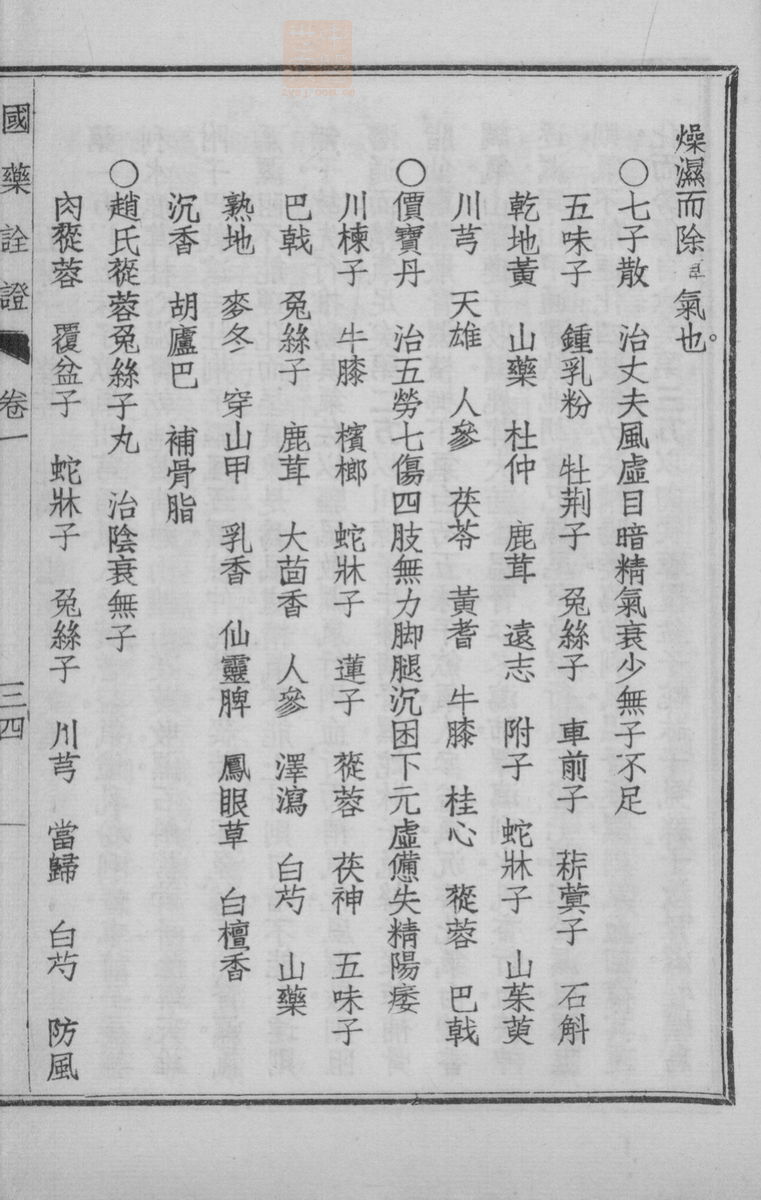 燥濕而除氣也。
○七子散　治丈夫風虛目暗精氣衰少無子不足
五味子　鍾乳粉　牡荆子　兔絲子　車前子　菥蓂子　石斛
乾地黃　山藥　杜仲　鹿茸　遠志　附子　蛇牀子　山茱萸
川芎　天雄　人參　茯苓　黃耆　牛膝　桂心　蓯蓉　巴戟
○價寶丹　治五勞七傷四肢無力脚腿沉困下元虛憊失精陽痿
川楝子　牛膝　檳榔　蛇牀子　蓮子　蓯蓉　茯神　五味子
巴戟　兔絲子　鹿茸　大茴香　人參　澤瀉　白芍　山藥
熟地　麥冬　穿山甲　乳香　仙靈脾　鳳眼草　白檀香
沉香　胡盧巴　補骨脂
○趙氏蓯蓉兔絲子丸　治陰衰無子
肉蓯蓉　覆盆子　蛇牀子　兔絲子　川芎　當歸　白芍　防風
國藥詮證　卷一　三四